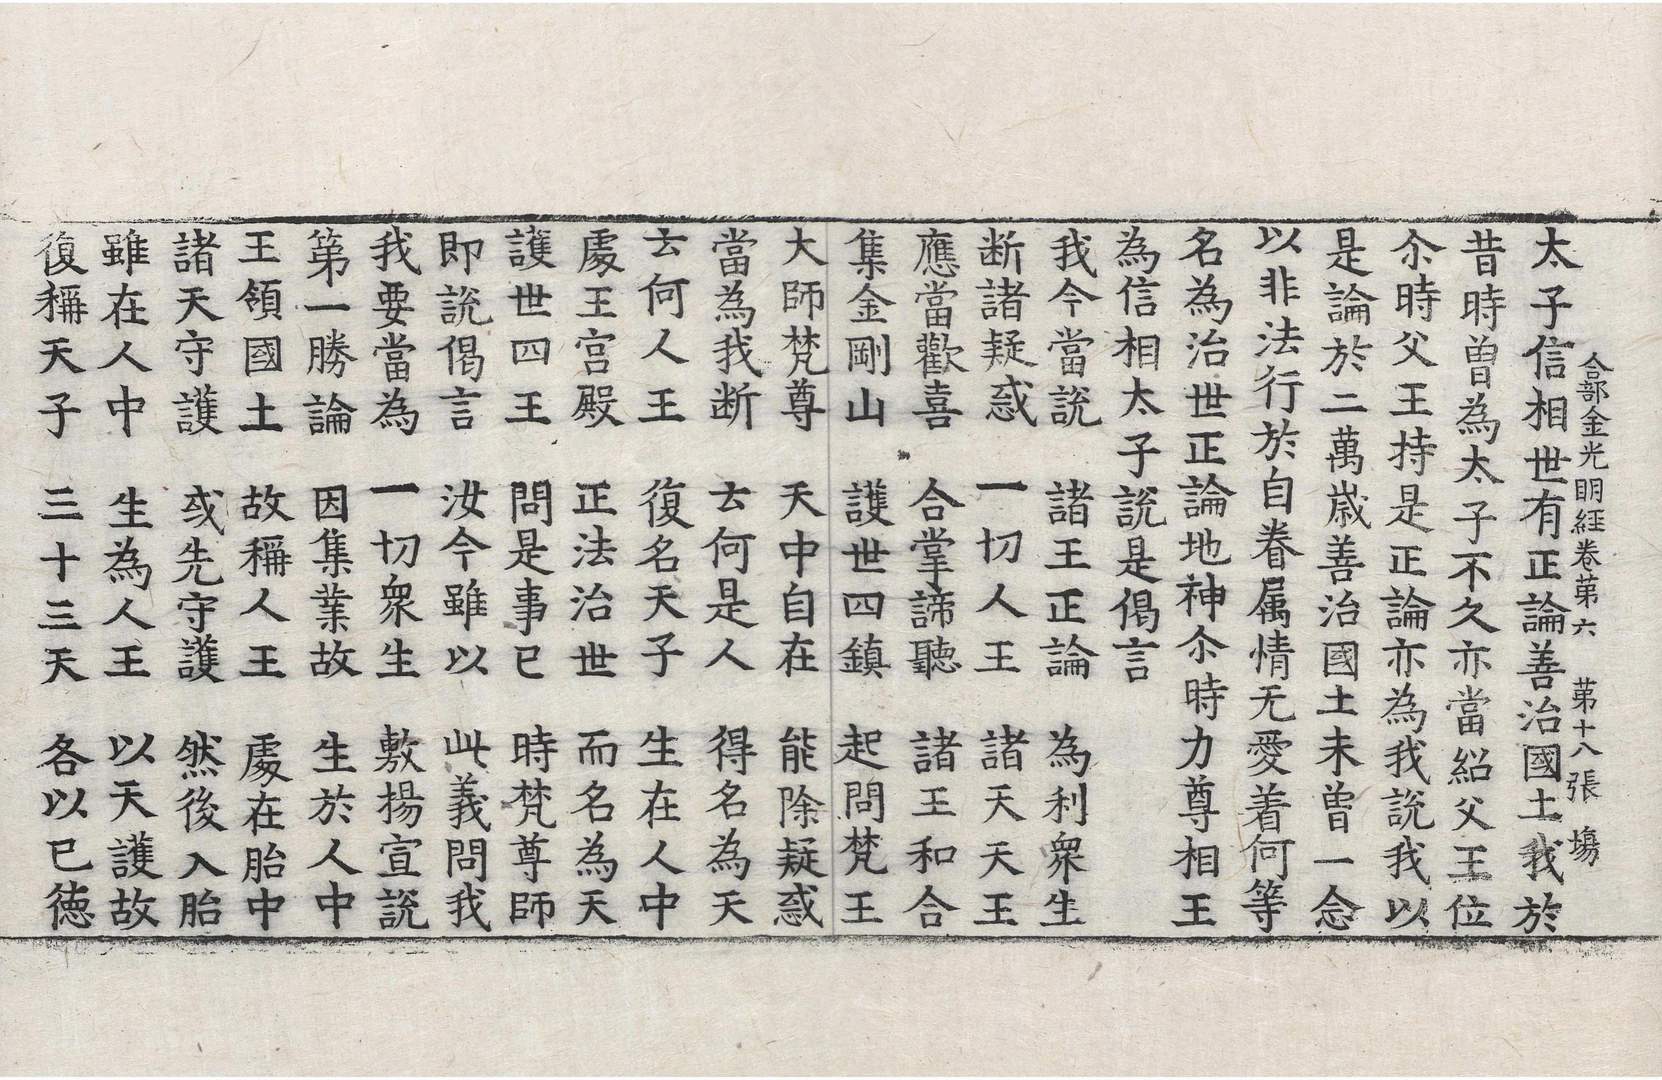 合部金光明經卷第六　第十八張　塲
太子信相世有正論善治國土我於
昔時曾為太子不久亦當紹父王位
尒時父王持是正論亦為我說我以
是論於二萬歲善治國土未曾一念
以非法行於自眷属情无愛着何等
名為治世正論地神尒時力尊相王
為信相太子說是偈言
我今當說　諸王正論　為利衆生
断諸疑惑　一切人王　諸天天王
應當歡喜　合掌諦聽　諸王和合
集金剛山　護世四鎮　起問梵王
大師梵尊　天中自在　能除疑惑
當為我断　云何是人　得名為天
云何人王　復名天子　生在人中
處王宮殿　正法治世　而名為天
護世四王　問是事已　時梵尊師
即說偈言　汝今雖以　此義問我
我要當為　一切衆生　敷揚宣說
第一勝論　因集業故　生於人中
王領國土　故稱人王　處在胎中
諸天守護　或先守護　然後入胎
雖在人中　生為人王　以天護故
復稱天子　三十三天　各以已德